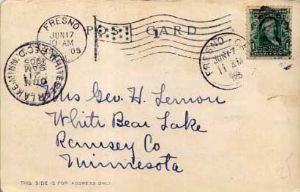 FRESNO
JUN 17
10-AM
05
POST CARD
FRESNO
JUN 17
11 AM
05
WHITE BEAR LAKE, MINN. REC'D.
1905
Mrs Geo. H. Lemon
White Bear Lake
Ramsey Co
Minnesota
THIS SIDE IS FOR ADDRESS ONLY.